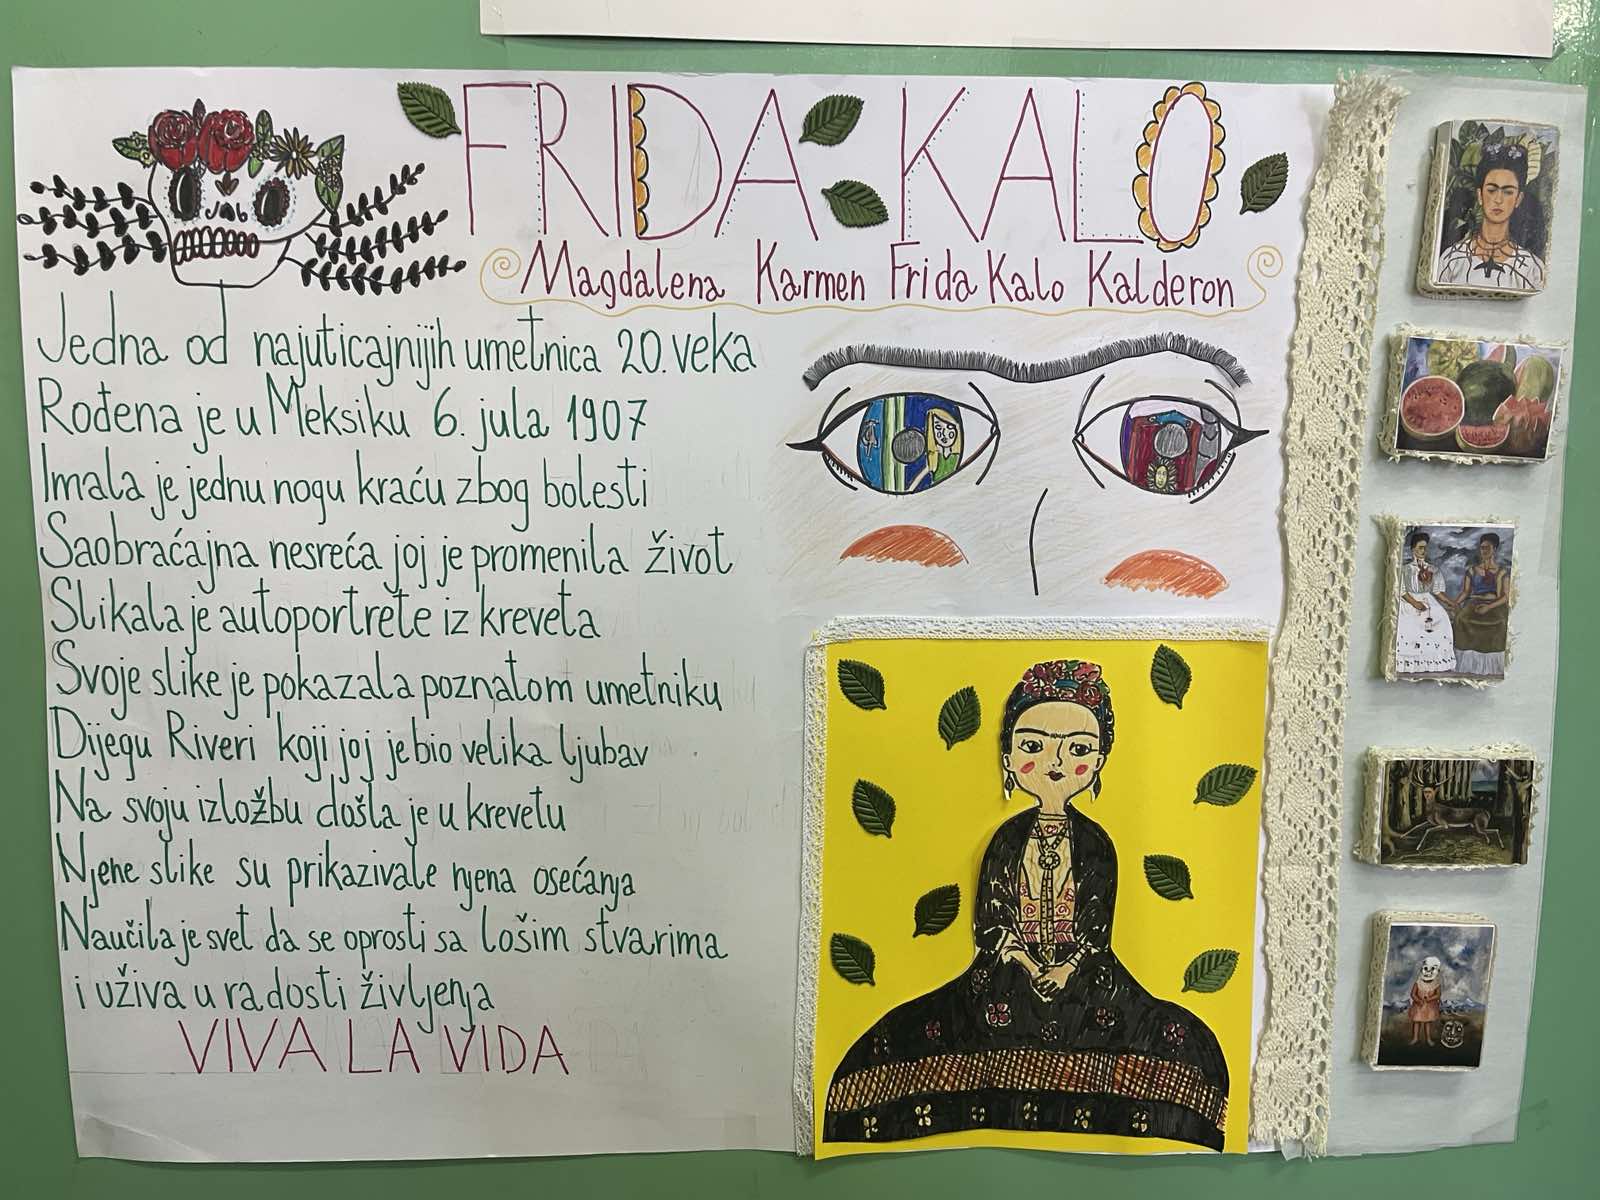 FRIDA KALO
Magdalena Karmen Frida Kalo Kalderon
Jedna od najuticajnijih umetnica 20. veka
Rođena je u Meksiku 6. jula 1907
Imala je jednu nogu kraću zbog bolesti
Saobraćajna nesreća joj je promenila život
Slikala je autoportrete iz kreveta
Svoje slike je pokazala poznatom umetniku
Dijegu Riveri koji joj je bio velika ljubav
Na svoju izložbu došla je u krevetu
Njene slike su prikazivale njena osećanja
Naučila je svet da se oprosti sa lošim stvarima
i uživa u radosti življenja
VIVA LA VIDA